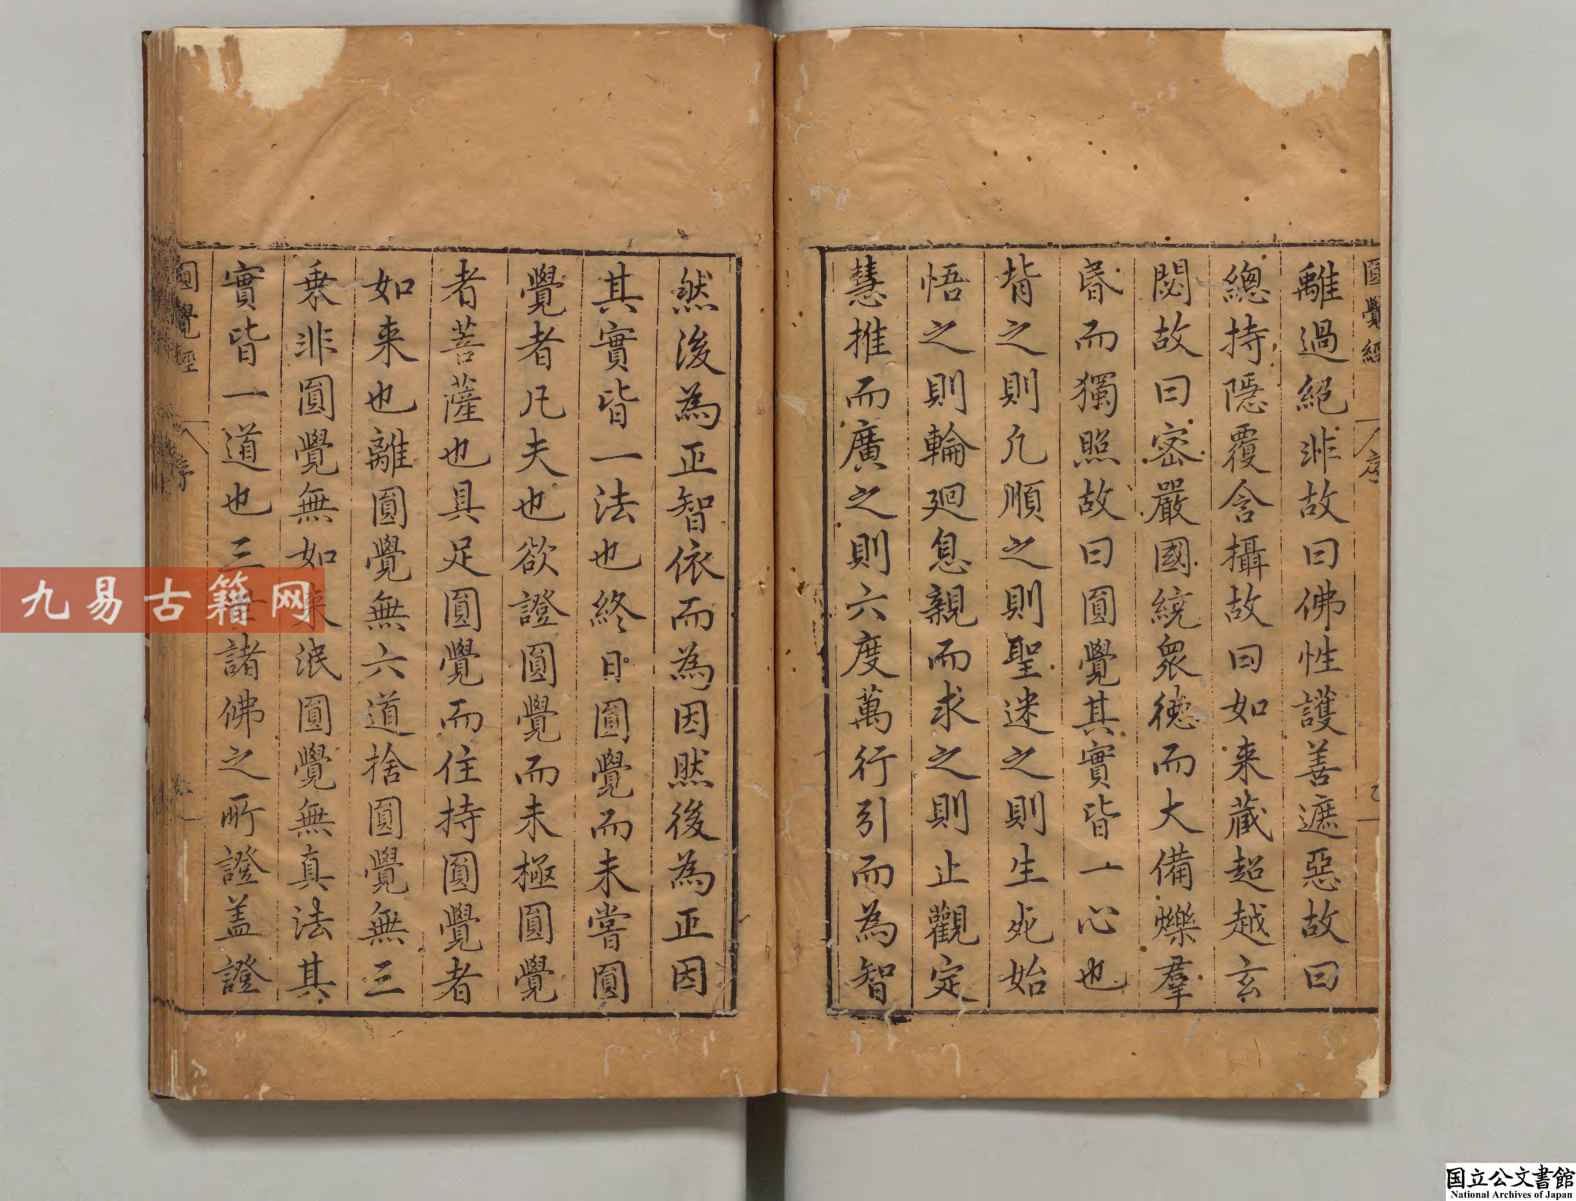 圓覺經
序
離過絕非故曰佛性護善遮惡故曰
總持隱覆含攝故曰如来藏超越玄
閟故曰密嚴國統衆德而大備爍羣
昏而獨照故曰圓覺其實皆一心也
背之則凡順之則聖迷之則生死始
悟之則輪廻息親而求之則止觀定
慧推而廣之則六度萬行引而為智
然後為正智依而為因然後為正因
其實皆一法也終日圓覺而未嘗圓
覺者凡夫也欲證圓覺而未極圓覺
者菩薩也具足圓覺而住持圓覺者
如来也離圓覺無六道捨圓覺無三
乗非圓覺無如来泯圓覺無真法其
實皆一道也三世諸佛之所證盖證
圓覺經
序
九易古籍网
国立公文書館
National Archives of Japan